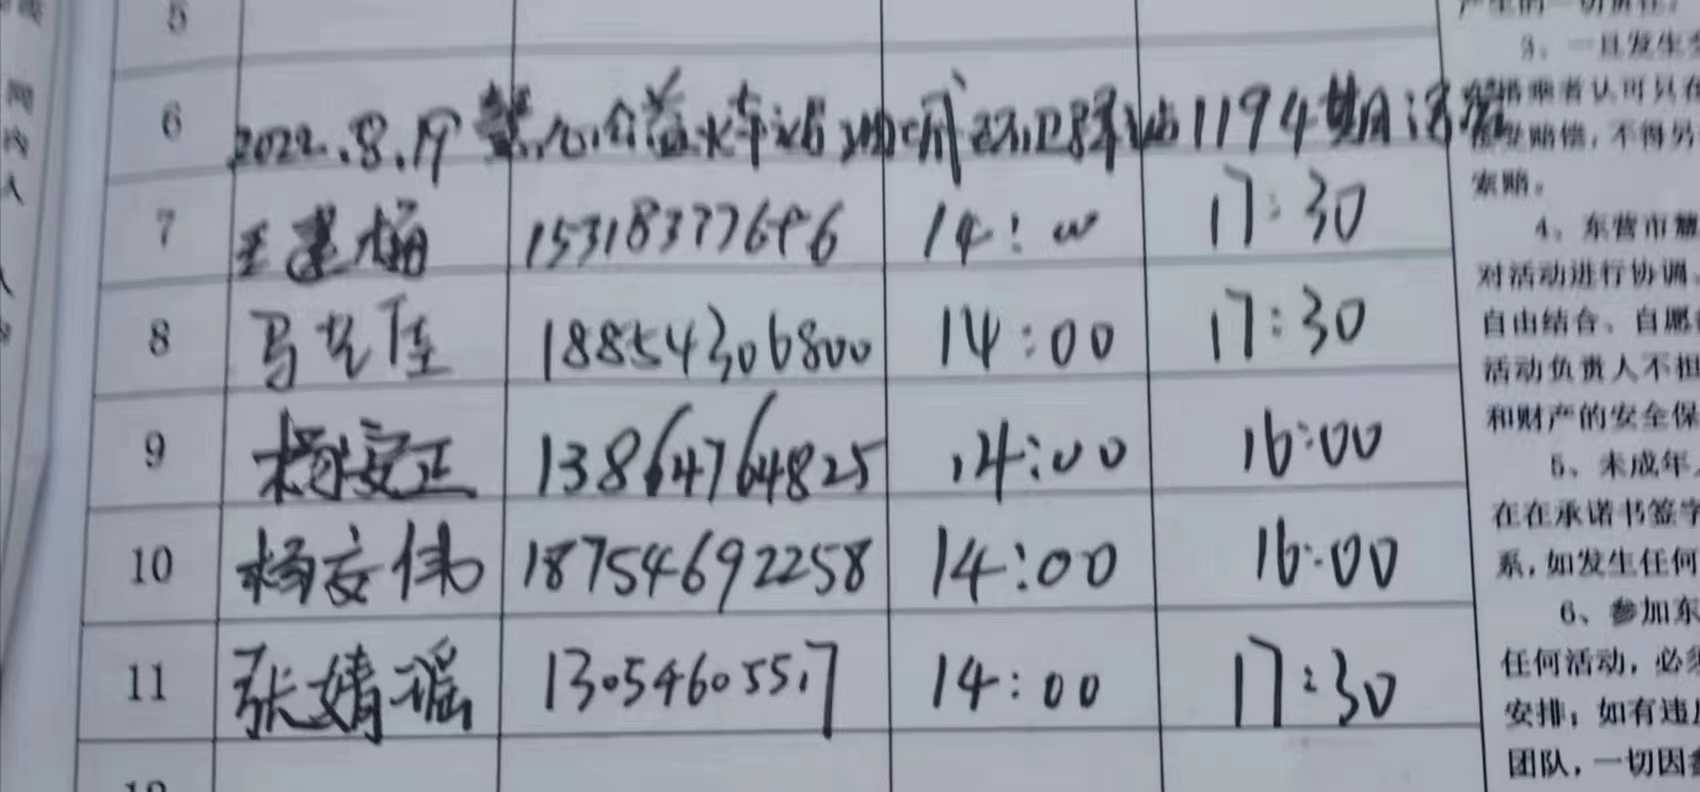 5
产生的一切责任。
3、一旦发生
6 2022.8.19 益火车站 环卫驿站1194期活
搭乘者认可只在
赔偿，不得另
索赔。
7 王建梅 153183776 14:00 17:30
4、东营市
对活动进行协调
8 马 佳 18854306800 14:00 17:30
自由结合、自愿
活动负责人不担
和财产的安全保
9 杨安正 13864764825 14:00 16:00
5、未成年
在在承诺书签字
10 杨文伟 18754692258 14:00 16:00
系，如发生任何
6、参加东
11 张婧瑶 13054605517 14:00 17:30
任何活动，必须
安排，如有违
团队，一切因